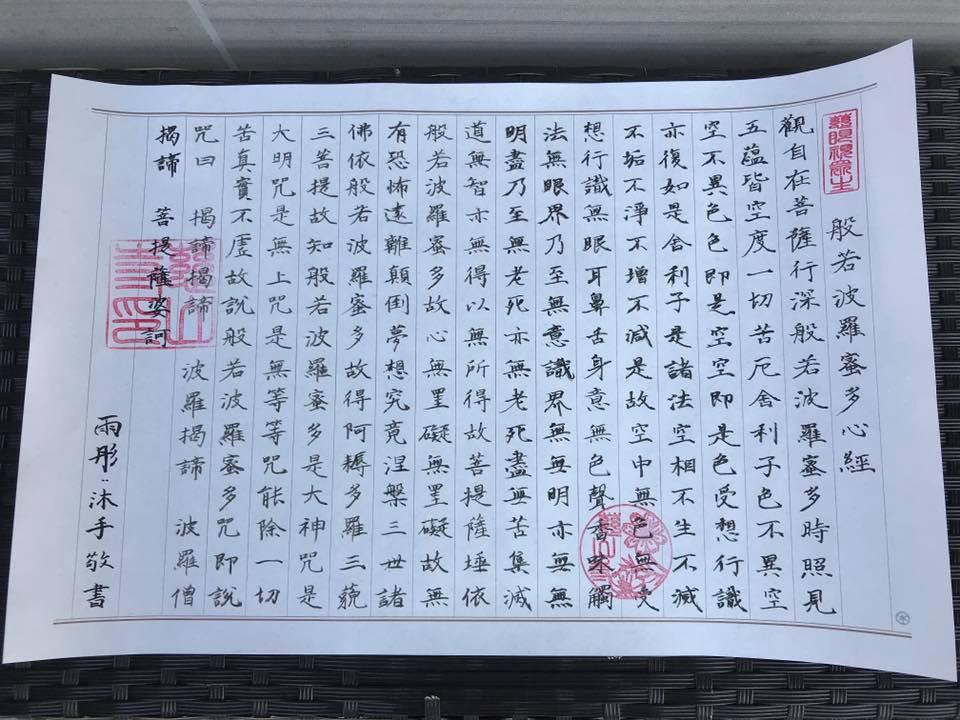 慈眼視眾生
般若波羅蜜多心經
觀自在菩薩行深般若波羅蜜多時照見
五蘊皆空度一切苦厄舍利子色不異空
空不異色色即是空空即是色受想行識
亦復如是舍利子是諸法空相不生不滅
不垢不淨不增不減是故空中無色無受
想行識無眼耳鼻舌身意無色聲香味觸
法無眼界乃至無意識界無無明亦無無
明盡乃至無老死亦無老死盡無苦集滅
道無智亦無得以無所得故菩提薩埵依
般若波羅蜜多故心無罣礙無罣礙故無
有恐怖遠離顛倒夢想究竟涅槃三世諸
佛依般若波羅蜜多故得阿耨多羅三藐
三菩提故知般若波羅蜜多是大神咒是
大明咒是無上咒是無等等咒能除一切
苦真實不虛故說般若波羅蜜多咒即說
咒曰 揭諦揭諦 波羅揭諦 波羅僧
揭諦 菩提薩婆訶
雨彤沐手敬書